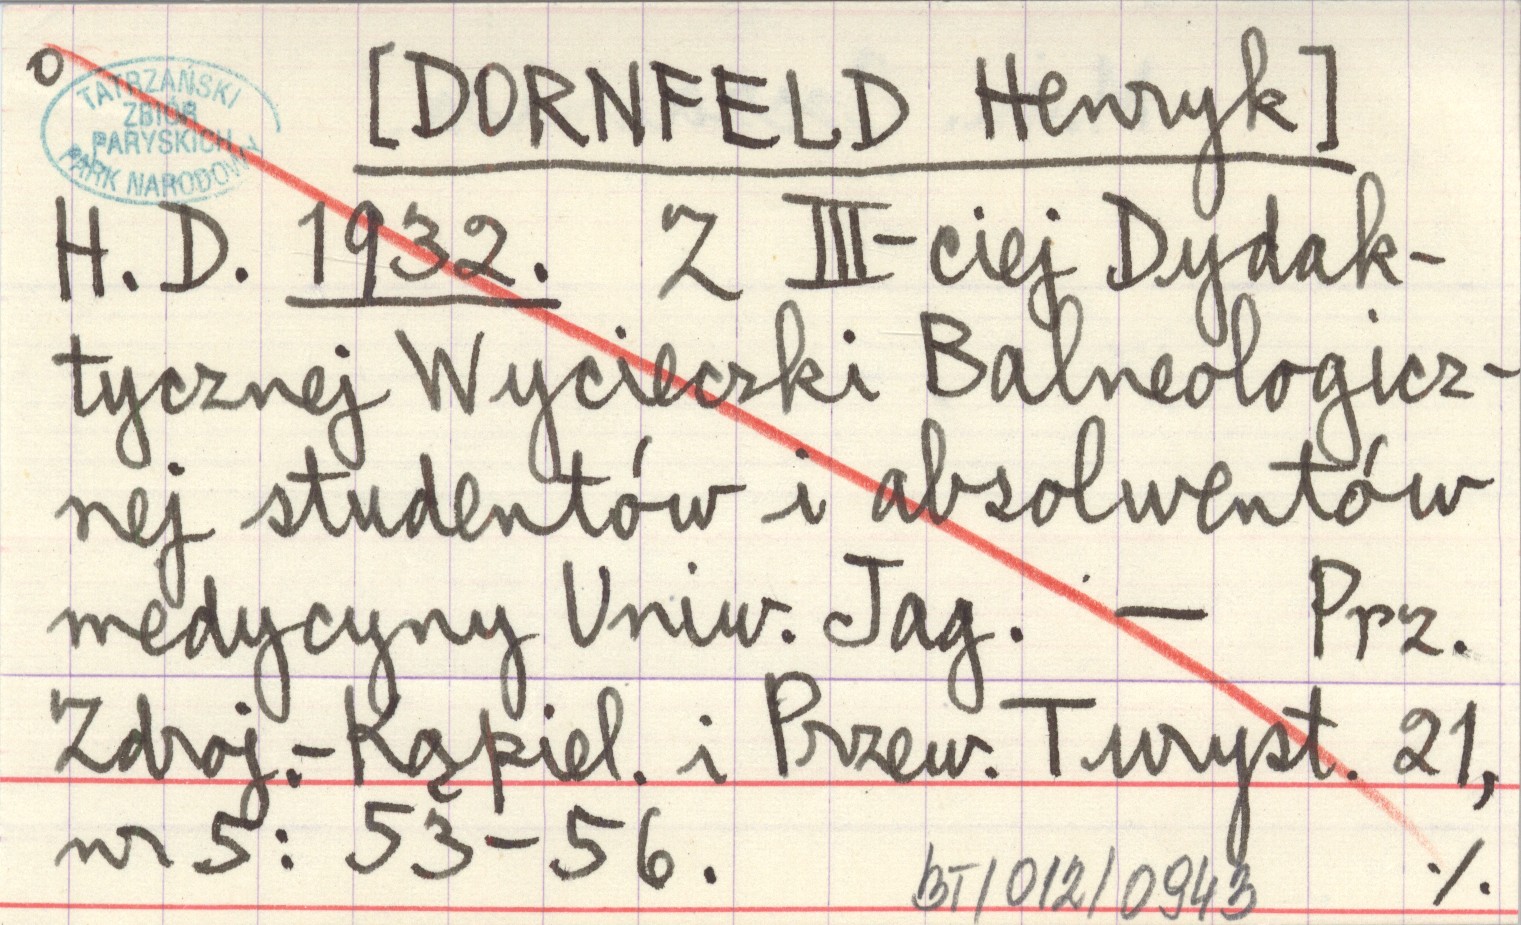 o
TATRZAŃSKI
ZBIÓR
PARYSKICH
PARK NARODOWY
[DORNFELD Henryk]
H. D. 1932. Z III-ciej Dydak-
tycznej Wycieczki Balneologicz-
nej studentów i absolwentów
medycyny Uniw. Jag. — Prz.
Zdroj.-Kąpiel. i Przew. Turyst. 21,
nr 5: 53-56.
BT/012/0943
./.